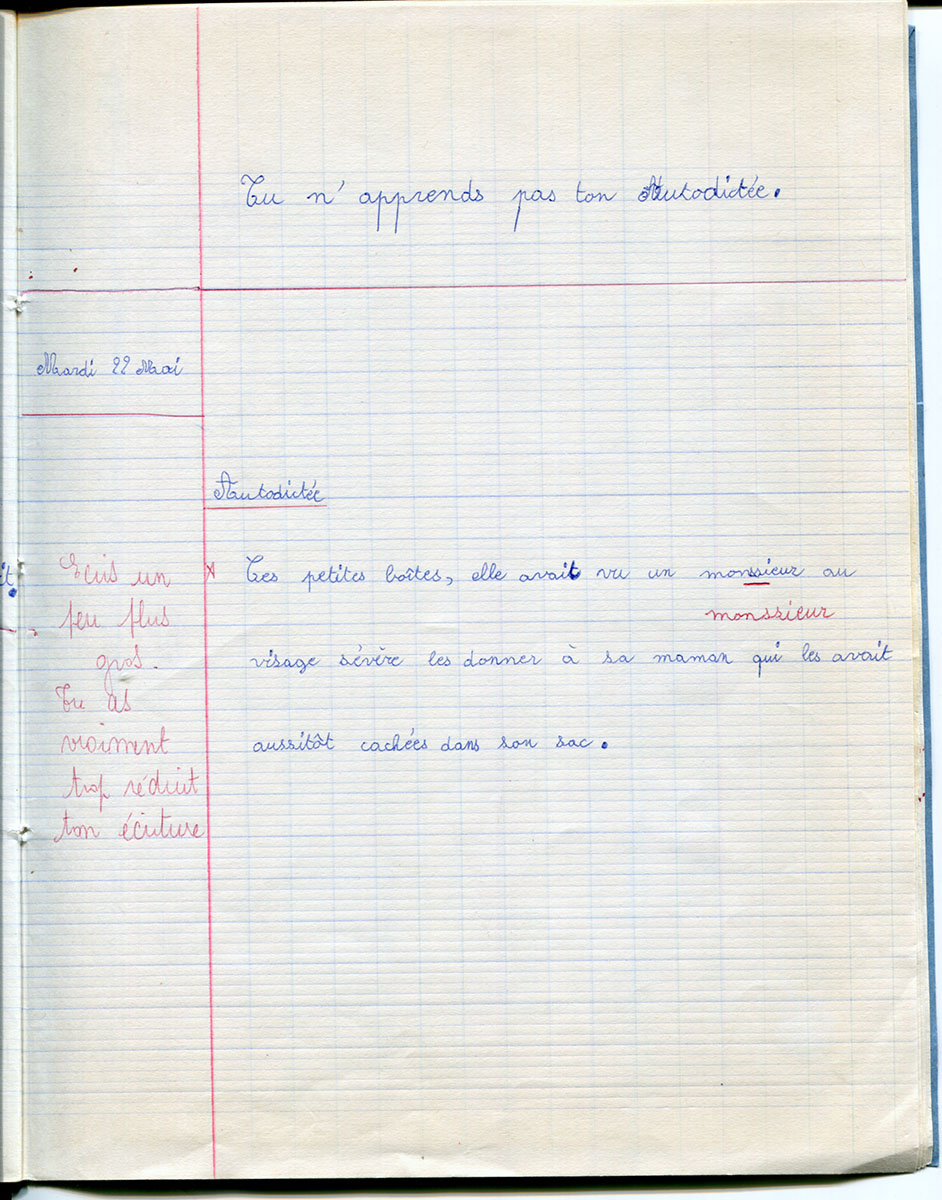 Tu n'apprends pas ton Autodictée.
Mardi 22 Mai
Autodictée
Ecris un
peu plus
gros.
Tu as
vraiment
trop réduit
ton écriture
x Ces petites boîtes, elle avait vu un monssieur au
monssieur
visage sévère les donner à sa maman qui les avait
aussitôt cachées dans son sac.